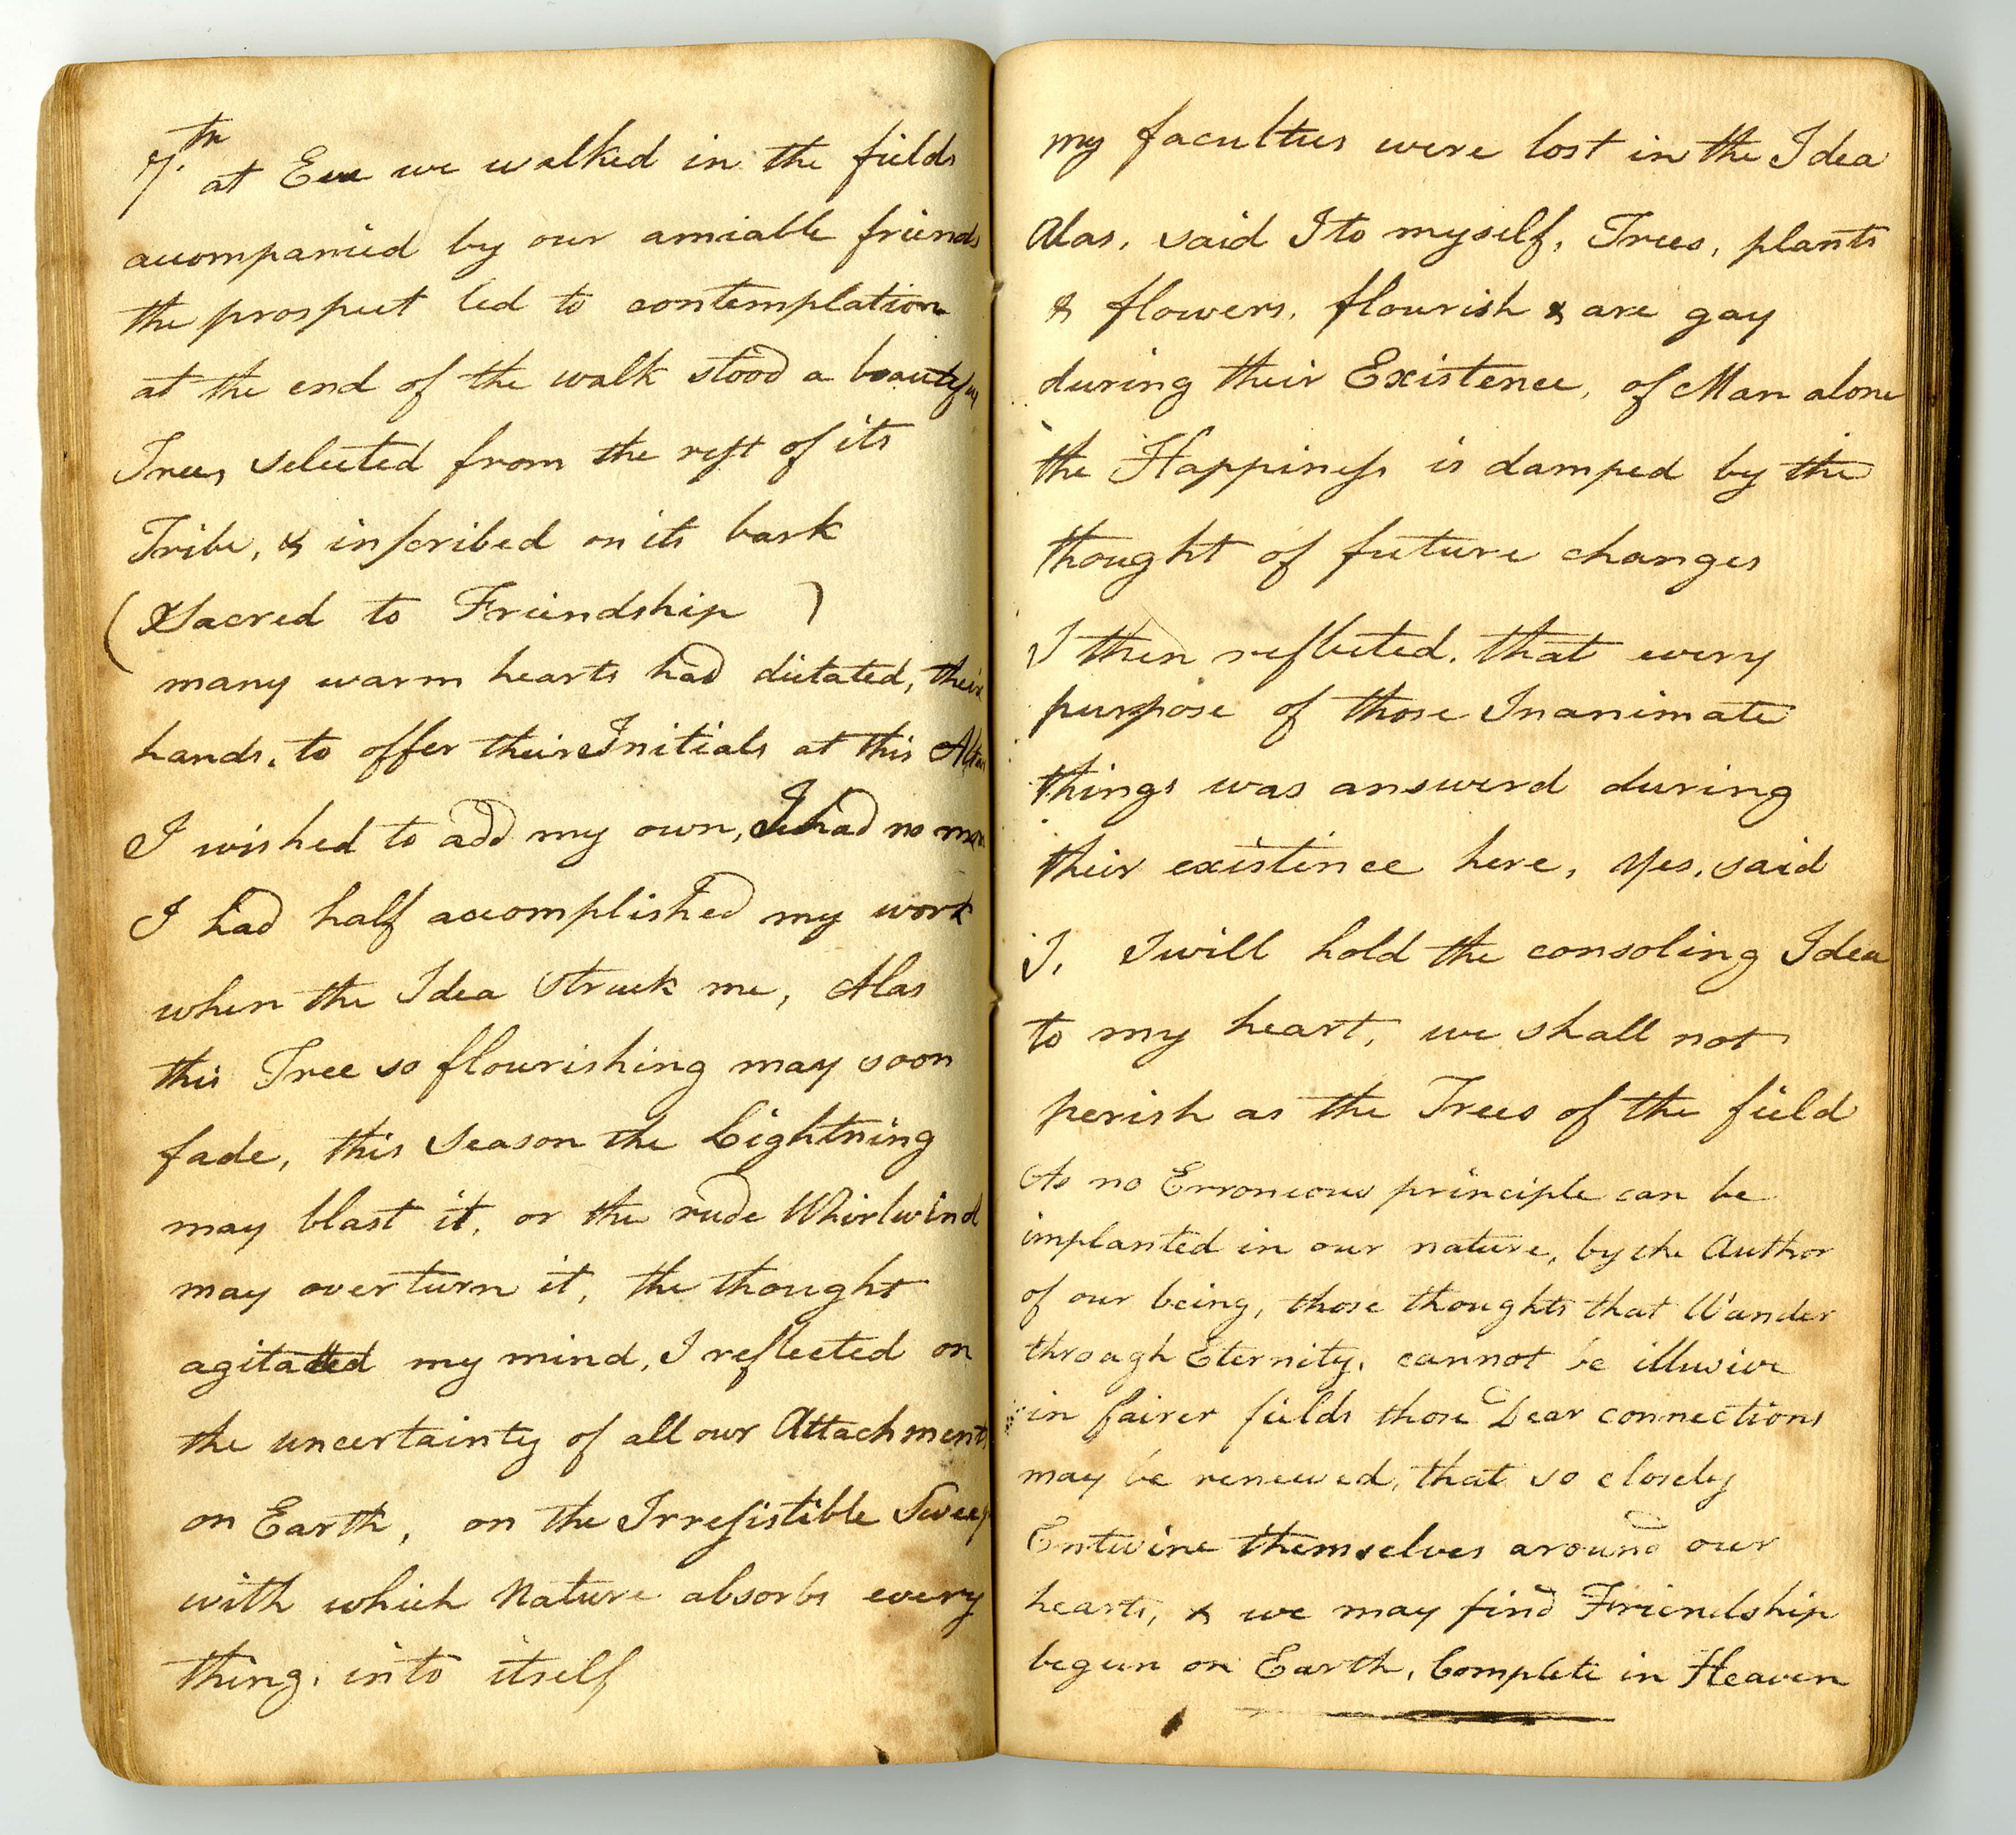 7.th at Eve we walked in the fields
accompanied by our amiable friends
the prospect led to contemplation
at the end of the walk stood a beautyful
Tree, selected from the reſt of its
Tribe, & inſcribed on its bark
( Sacred to Friendship )
many warm hearts had dictated, their
hands, to offer their Initials at this Altar
I wished to add my own, I had no more
I had half accomplished my work
when the Idea struck me, Alas
this Tree so flourishing may soon
fade, this season the Lightning
may blast it, or the rude Whirlwind
may overturn it, the thought
agitated my mind, I reflected on
the uncertainty of all our Attachments
on Earth, on the Irreſistible Sweep
with which Nature absorbs every
thing, into itself
my faculties were lost in the Idea
Alas, said I to myself, Trees, plants
& flowers, flourish & are gay
during their Existence, of Man alone
the Happineſs is damped by the
thought of future changes
I then reflected, that every
purpose of those Inanimate
things was answerd during
their existince here, yes, said
I, I will hold the consoling Idea
to my heart, we shall not
perish as the Trees of the field
As no Erroneous principle can be
implanted in our nature, by the Author
of our being, those thoughts that Wander
through Eternity, cannot be illusive
in fairer fields those Dear connections
may be renewed, that so closely
Entwine themselves around our
hearts, & we may find Friendship
begun on Earth, Complete in Heaven